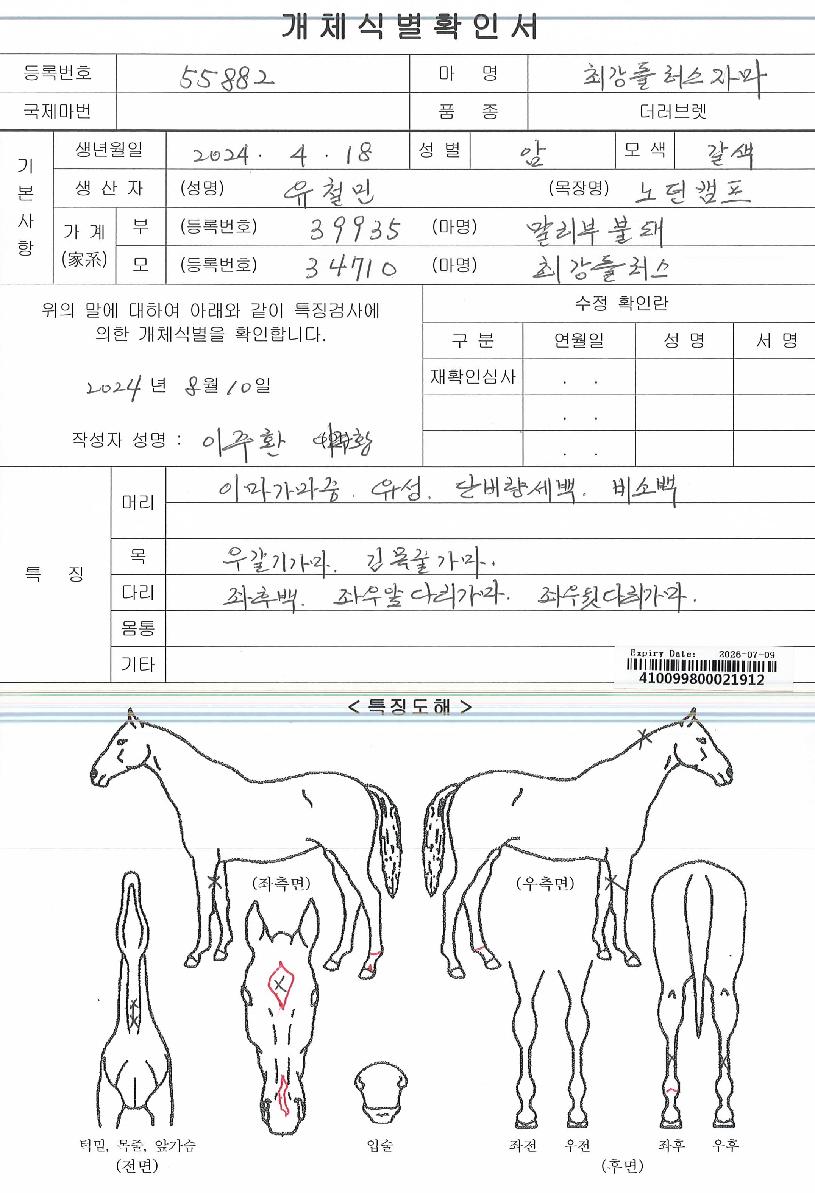 개체식별확인서
등록번호 55882 마 명 최강플러스자마
국제마번 품 종 더러브렛
기본사항
생년월일 2024. 4. 18 성별 암 모색 갈색
생 산 자 (성명) 유철민 (목장명) 노던캠프
가 계 (家系)
부 (등록번호) 39935 (마명) 말리부불패
모 (등록번호) 34710 (마명) 최강플러스
위의 말에 대하여 아래와 같이 특징검사에
의한 개체식별을 확인합니다.
2024 년 8월 10일
작성자 성명 : 이주환
수정 확인란
구 분 연월일 성 명 서 명
재확인심사 . .
. .
. .
특 징
머리 이마가마중. 유성. 단비량세백. 비소백
목 우갈기가마. 깊목줄가마.
다리 좌후백. 좌우앞다리가마. 좌우뒷다리가마.
몸통
기타
Expiry Date: 2026-07-09
410099800021912
< 특징도해 >
(좌측면) (우측면)
턱밑, 목줄, 앞가슴
(전면)
입술
좌전 우전 좌후 우후
(후면)